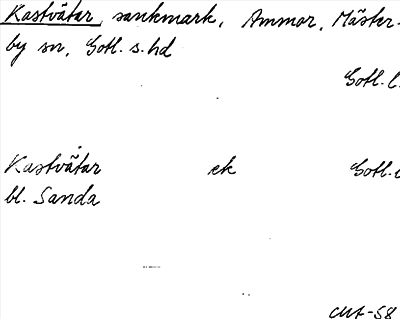 Kastvätar, sankmark, Ammor, Mäster-
by sn, Gotl. s. hd
Gotl. l.
Kastvätar ek Gotl.
bl. Sanda